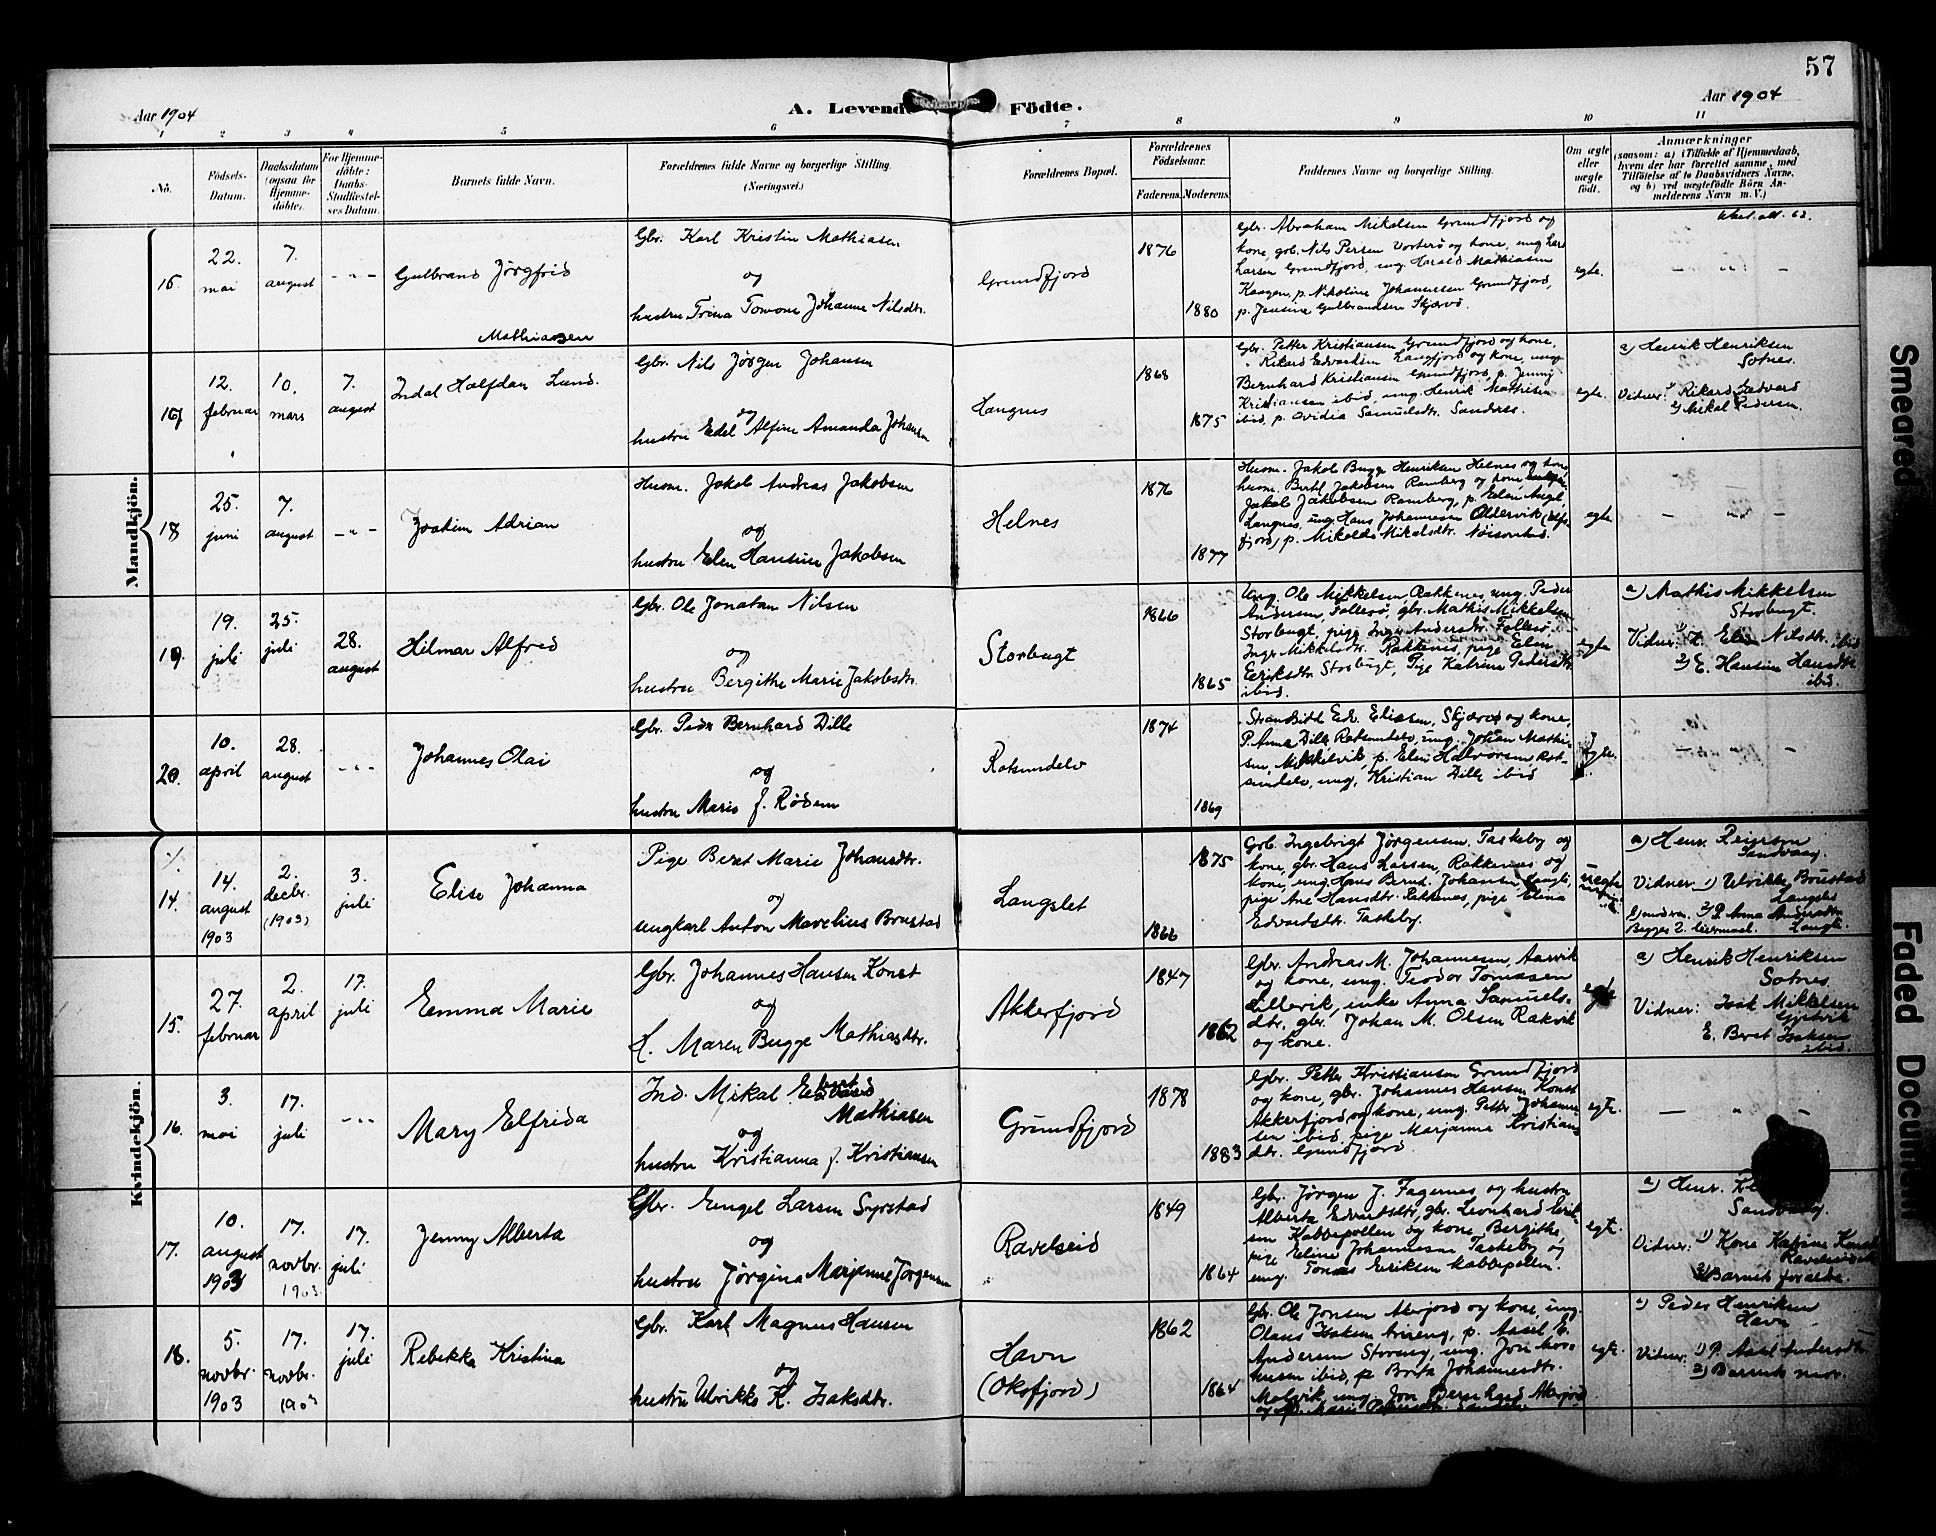 57
Aar 1904
A. Levende Fødte.
Aar 1904
1 2 3 4 5 6 7 8 9 10 11
No.
Födsels-
Datum.
Daabsdatum
(ogsaa for
Hjemme-
døbte).
For Hjemme-
døbte:
Daabs-
Stadfæstel-
ses Datum.
Barnets fulde Navn.
Forældrenes fulde Navne og borgerlige Stilling.
(Næringsvei.)
Forældrenes Bopæl.
Forældrenes
Födselsaar.
Faderens. Moderens.
Faddernes Navne og borgerlige Stilling.
Om ægte
eller
uægte
födt.
Anmærkninger
(saasom: a) i Tilfælde af Hjemmedaab,
hvem der har forrettet samme, med
Tilföielse af to Daabsvidners Navne,
og b) ved uægtefödte Börn An-
melderens Navn m. V.)
Mandkjön.
16.
22.
mai
7.
august
- " -
Gulbrand Jørgfrid
Mathiassen
Gbr. Karl Kristin Mathiasen
og
hustru Trina Tomone Johanne Nilsdtr.
Grundfjord
1876
1880
Gbr. Abraham Mikalsen Grundfjord og
kone, gbr. Nils Persen Vorterø og kone, ung. Lars
Larsen Grundfjord, ung. Harald Mathiasen
Kaagen, p. Nikoline Johannesen Grundfjord,
p. Jensine Gulbrandsen Skjærvø.
egte.
- " -
17
12.
februar
10.
mars
7.
august
Indal Halfdan Lund.
Gbr. Nils Jørgen Johansen
og
hustru Edel Alfine Amanda Johansen
Langnes
1868
1875
Gbr. Petter Kristiansen Grundfjord og kone,
" Rikard Edvardsen Langfjord og kone, ung.
Bernhard Kristiansen Grundfjord, p. Jenny
Kristiansen ibid, ung. Henrik Mathisen
ibid, p. Ovidia Samuelsdtr. Sandnes.
egte.
a) Henrik Henriksen
Sotnes.
Vidner: 1) Rikard Edvard
2) Mikal Pedersen.
18
25.
juni
7.
august
- " -
Joakim Adrian
Husm. Jakob Andreas Jakobsen
og
hustru Elen Hansine Jakobsen
Helnes
1876
1877
Husm. Jakob Bugge Henriksen Helnes og kone,
husm. Bertel Jakobsen Ramberg og kone,
Jakob Jakobsen Ramberg, p. Elen
Langnes, ung. Hans Johannesen Oldervik (Ulfs-
fjord) p. Mikolde Mikalsdtr.
egte
- " -
19.
19.
juli
25.
juli
28.
august
Hilmar Alfred
Gbr. Ole Jonatan Nilsen
og
hustru Bergithe Marie Jakobsdtr.
Storbugt
1866
1865
Ung. Ole Mikkelsen Rakkenes, ung. Peder
Andersen Follesø, gbr. Mathis Mikkelsen
Storbugt, pige Inger Andersdtr. Follesø,
Inger Mikkelsdtr. Rakkenes, pige Elen
Eriksdtr. Storbugt, Pige Katrine Pedersdtr.
ibid.
egte
a) Mathis Mikkelsen
Storbugt.
Vidner: 1) Elen Nilsdtr. ibid
2) E. Hansine Hansdtr.
ibid.
20.
10.
april
28.
august
- " -
Johannes Olai
Gbr. Peder Bernhard Dille
og
hustru Marie f. Rødsen
Rotsundelv
1874
1869
Strandsidd. Edv. Eliasen, Skjærvø og kone,
P. Anna Dille Rotsundelv, ung. Johan Mathi-
sen, Mikkelvik, p. Elen Halvorsen Rot-
sundelv, ung. Kristian Dille ibid
egte.
- " -
Kvindekjön.
14.
14.
august
1903
2.
decbr.
(1903)
3.
juli
Elise Johanna
Pige Beret Marie Johansdtr.
og
ungkarl Anton Marelius Brustad
Langslet
1875
1866
Gbr. Ingebrigt Jørgensen, Taskeby og
kone, gbr. Hans Larsen, Rakkenes og
kone, ung. Hans Bernt. Johansen Langsl.,
pige Ane Hansdtr. Rakkenes, pige Elena
Edvardsdtr. Taskeby.
uegte
a) Henr.
Sandvaag.
Vidner: 1) Ulrikke Brustad
Langslet
2) P. Anna Andersdtr.
Begges 2. leiermaal. Langsl.
15.
27.
februar
2.
april
17.
juli
Emma Marie
Gbr. Johannes Hansen Konst
og
h. Maren Bugge Mathiasdtr.
Akkerfjord
1847
1862
Gbr. Andreas M. Johannesen, Aarvik
og kone, ung. Teodor Tomassen
Lillevik, enke Anna Samuels-
dtr. gbr. Johan M. Olsen Rakvik
og kone.
egte
a) Henrik Henriksen
Sotnes
Vidner: Isak Mikkelsen
E. Beret Isaksen
ibid.
16.
3.
mai
17.
juli
- " -
Mary Elfrida
Ind. Mikal
Mathiasen
og
hustru Kristianna f. Kristiansen
Grundfjord
1878
1883
Gbr. Petter Kristiansen Grundfjord
og kone, gbr. Johannes Hansen Konst
Akkerfjord og kone, ung. Petter Johanne-
sen ibid, pige Marjanna Kristians-
dtr. Grundfjord.
egte.
- " -
17.
10.
august
1903
17.
novbr.
1903.
17.
juli
Jenny Alberta
Gbr. Engel Larsen Syrstad
og
hustru Jørgina Marjanne Jørgensen
Ravelseid
1849
1864
Gbr. Jørgen J. Fagernes og hustru
Alberta Edvardsdtr., gbr. Leonhard Erik-
sen Kobbepollen og kone Bergithe,
pige Eline Johannesen Taskeby og
ung. Tomas Eriksen Kobbepollen.
egt.
a) Henr.
Sandvaag.
Vidner: 1) Kone Katrine Konst
Ravelseidet
2) Barnets forældre.
18.
5.
novbr.
1903
17.
novbr.
1903
17.
juli
Rebekka Kristina
Gbr. Karl Magnus Hansen
og
hustru Ulrikke K. Isaksdtr.
Havn
(Oksfjord)
1862
1864
Gbr. Ole Jonsen Alterfjord og kone, ung.
Olaus Isaksen p. Aasel E.
Andersen Storeng, ung. Jon
ibid, p. Berta Johannesdtr.
Malvik, ung. Jon Bernhard
og p. Marie
egte.
a) Peder Henriksen
Havn
Vidner: 1) P. Aasel Andersdtr.
2) Barnets mor.
Smeared
Faded Document